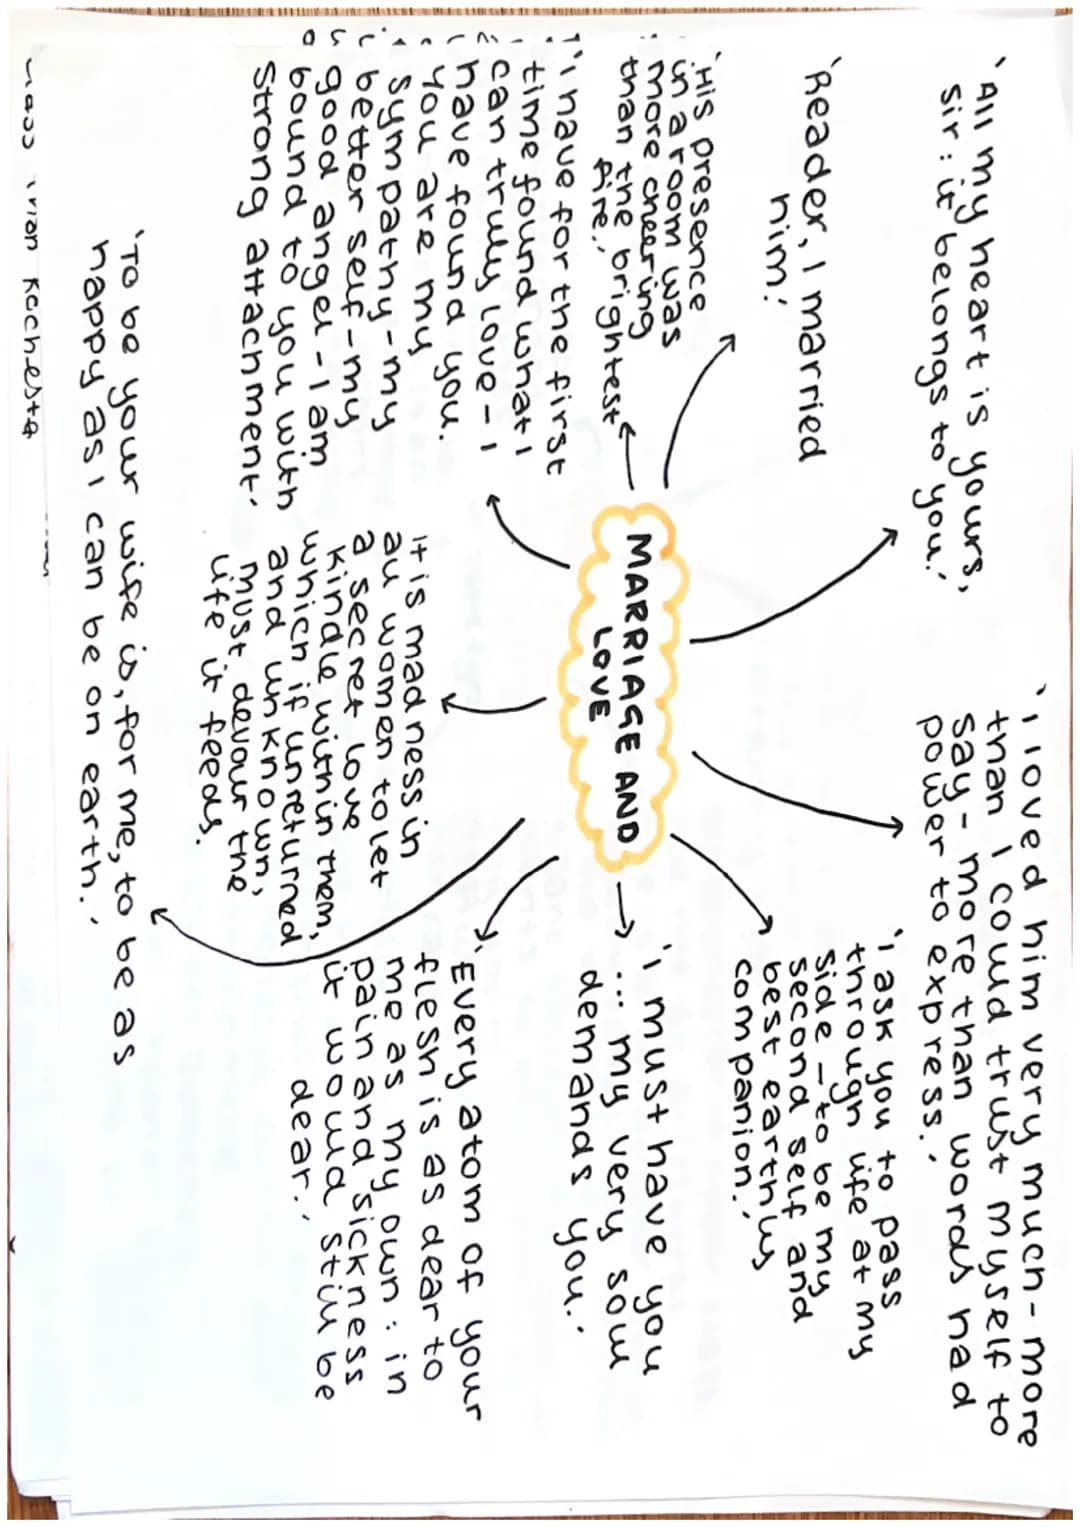 'All my heart is yours,
sir: it belongs to you.'
'I loved him very much - more
than I could trust myself to
say - more than words had
power to express.'
'Reader, I married
him.'
'I ask you to pass
through life at my
side - to be my
second self and
best earthly
companion.'
'His presence
in a room was
more cheering
than the brightest
fire.'
MARRIAGE AND
LOVE
'I must have you
... my very soul
demands you.'
'I have for the first
time found what I
can truly love - I
have found you.
You are my
sympathy - my
better self - my
good angel - I am
bound to you with
strong attachment.'
It is madness in
all women to let
a secret love
kindle within them,
which if unreturned
and unknown,
must devour the
life it feeds.
'Every atom of your
flesh is as dear to
me as my own: in
pain and sickness
it would still be
dear.'
'To be your wife is, for me, to be as
happy as I can be on earth.'